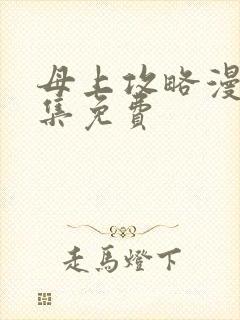 母上攻略漫
集免费
走馬燈下